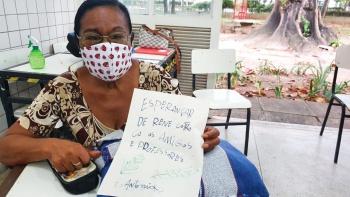 ESPERANÇAR
DE REVE
AS AMIGAS
E PROFESSORES
Antonia